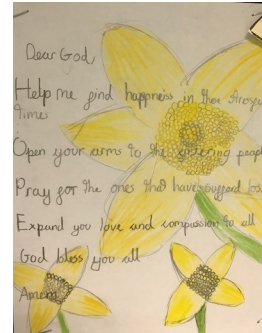 Dear God,
Help me find happiness in thoe
Time
Open your arms to the people
Pray for the ones that have suffered los
Expand you love and compassion to all
God bless you all
Amen